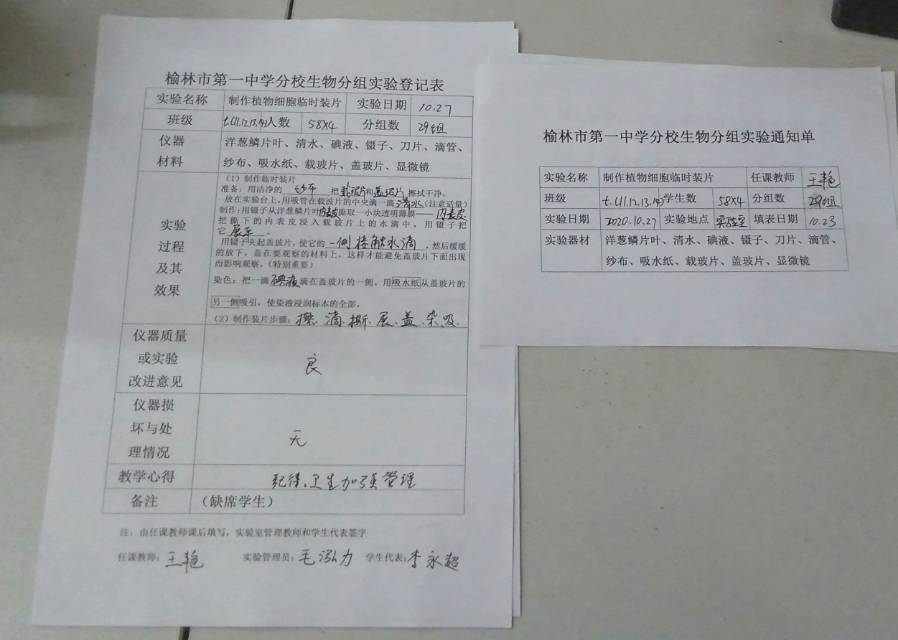 榆林市第一中学分校生物分组实验登记表
实验名称 制作植物细胞临时装片 实验日期 10.27
班级 人数 58X4 分组数 29组
仪器 材料 洋葱鳞片叶、清水、碘液、镊子、刀片、滴管、
纱布、吸水纸、载玻片、盖玻片、显微镜
实验过程及其效果
(1)制作临时装片
准备:用洁净的 纱布 把载玻片和盖玻片擦拭干净。
放在实验台上,用吸管在载玻片的中央滴一滴清水(注意适量)
制作:用镊子从洋葱鳞片叶 撕取一小块透明薄膜——内表皮
把撕下的内表皮浸入载玻片上的水滴中,用镊子把
它展平。
用镊子夹起盖玻片,使它的一侧接触水滴,然后缓缓
的放下,盖在要观察的材料上,这样才能避免盖玻片下面出现
而影响观察。(特别重要)
染色:把一滴碘液滴在盖玻片的一侧。用吸水纸从盖玻片的
另一侧吸引,使染液浸润标本的全部。
(2)制作装片步骤:擦、滴、撕、展、盖、染、吸.
仪器质量或实验改进意见 良
仪器损坏与处理情况 无
教学心得 纪律、卫生加强管理
备注 (缺席学生)
注:由任课教师课后填写,实验室管理教师和学生代表签字
任课教师:王艳 实验管理员:毛泓力 学生代表:李永超
榆林市第一中学分校生物分组实验通知单
实验名称 制作植物细胞临时装片 任课教师 王艳
班级 学生数 58X4 分组数 29组
实验日期 2020.10.27 实验地点 实验室 填表日期 10.23
实验器材 洋葱鳞片叶、清水、碘液、镊子、刀片、滴管、
纱布、吸水纸、载玻片、盖玻片、显微镜